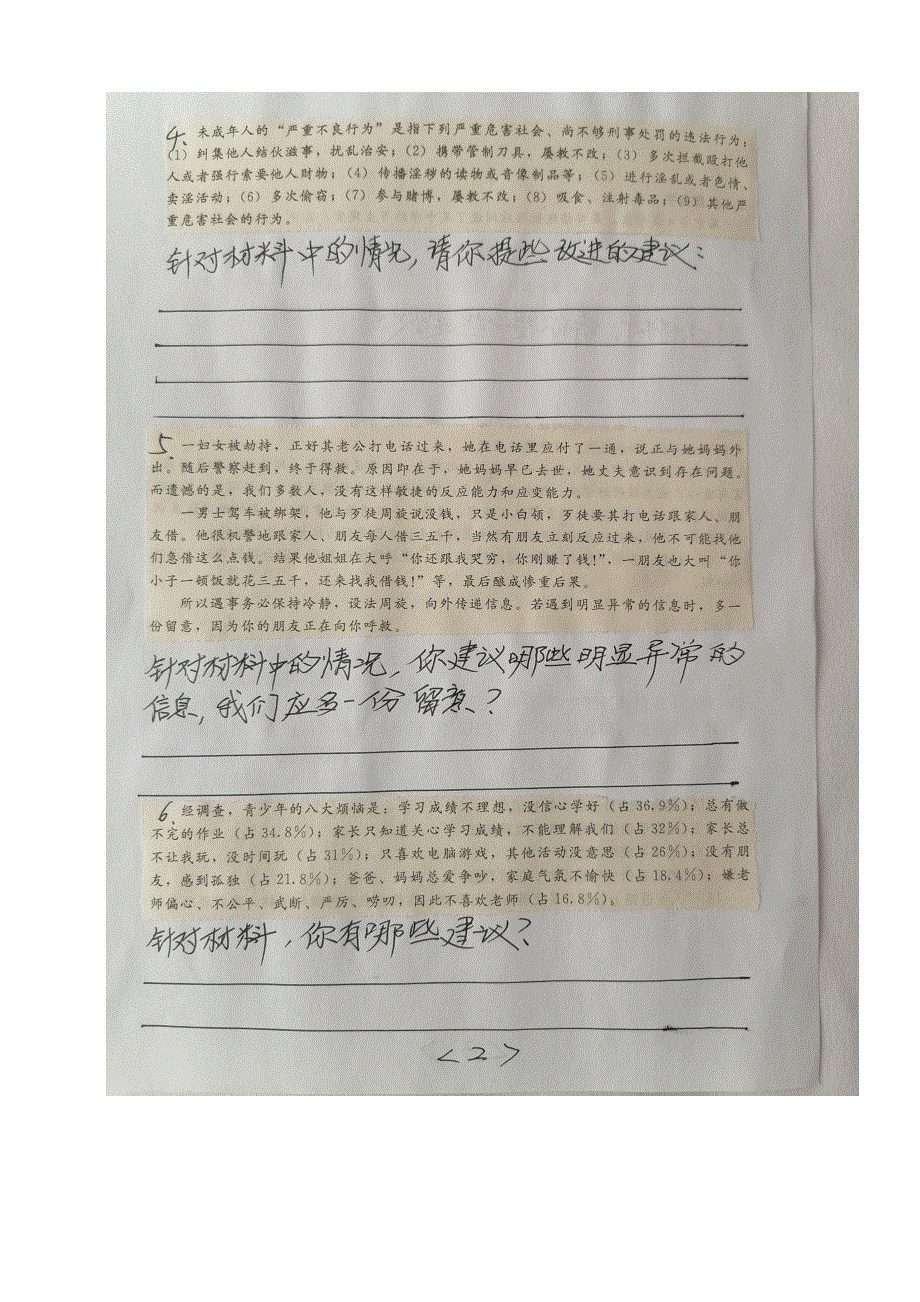 4. 未成年人的“严重不良行为”是指下列严重危害社会、尚不够刑事处罚的违法行为:
(1) 纠集他人结伙滋事，扰乱治安；(2) 携带管制刀具，屡教不改；(3) 多次拦截殴打他
人或者强行索要他人财物；(4) 传播淫秽的读物或音像制品等；(5) 进行淫乱或者色情、
卖淫活动；(6) 多次偷窃；(7) 参与赌博，屡教不改；(8) 吸食、注射毒品；(9) 其他严
重危害社会的行为。
针对材料中的情况，请你提些改进的建议：
5. 一妇女被劫持，正好其老公打电话过来，她在电话里应付了一通，说正与她妈妈外
出。随后警察赶到，终于得救。原因即在于，她妈妈早已去世，她丈夫意识到存在问题。
而遗憾的是，我们多数人，没有这样敏捷的反应能力和应变能力。
一男士驾车被绑架，他与歹徒周旋说没钱，只是小白领，歹徒要其打电话跟家人、朋
友借。他很机警地跟家人、朋友每人借三五千，当然有朋友立刻反应过来，他不可能找他
们急借这么点钱。结果他姐姐在大呼“你还跟我哭穷，你刚赚了钱！”，一朋友也大叫“你
小子一顿饭就花三五千，还来找我借钱！”等，最后酿成惨重后果。
所以遇事务必保持冷静，设法周旋，向外传递信息。若遇到明显异常的信息时，多一
份留意，因为你的朋友正在向你呼救。
针对材料中的情况，你建议哪些明显异常的
信息，我们应多一份留意？
6. 经调查，青少年的八大烦恼是：学习成绩不理想，没信心学好（占36.9%）；总有做
不完的作业（占34.8%）；家长只知道关心学习成绩，不能理解我们（占32%）；家长总
不让我玩，没时间玩（占31%）；只喜欢电脑游戏，其他活动没意思（占26%）；没有朋
友，感到孤独（占21.8%）；爸爸、妈妈总爱争吵，家庭气氛不愉快（占18.4%）；嫌老
师偏心、不公平、武断、严厉、唠叨，因此不喜欢老师（占16.8%）。
针对材料，你有哪些建议？
<2>